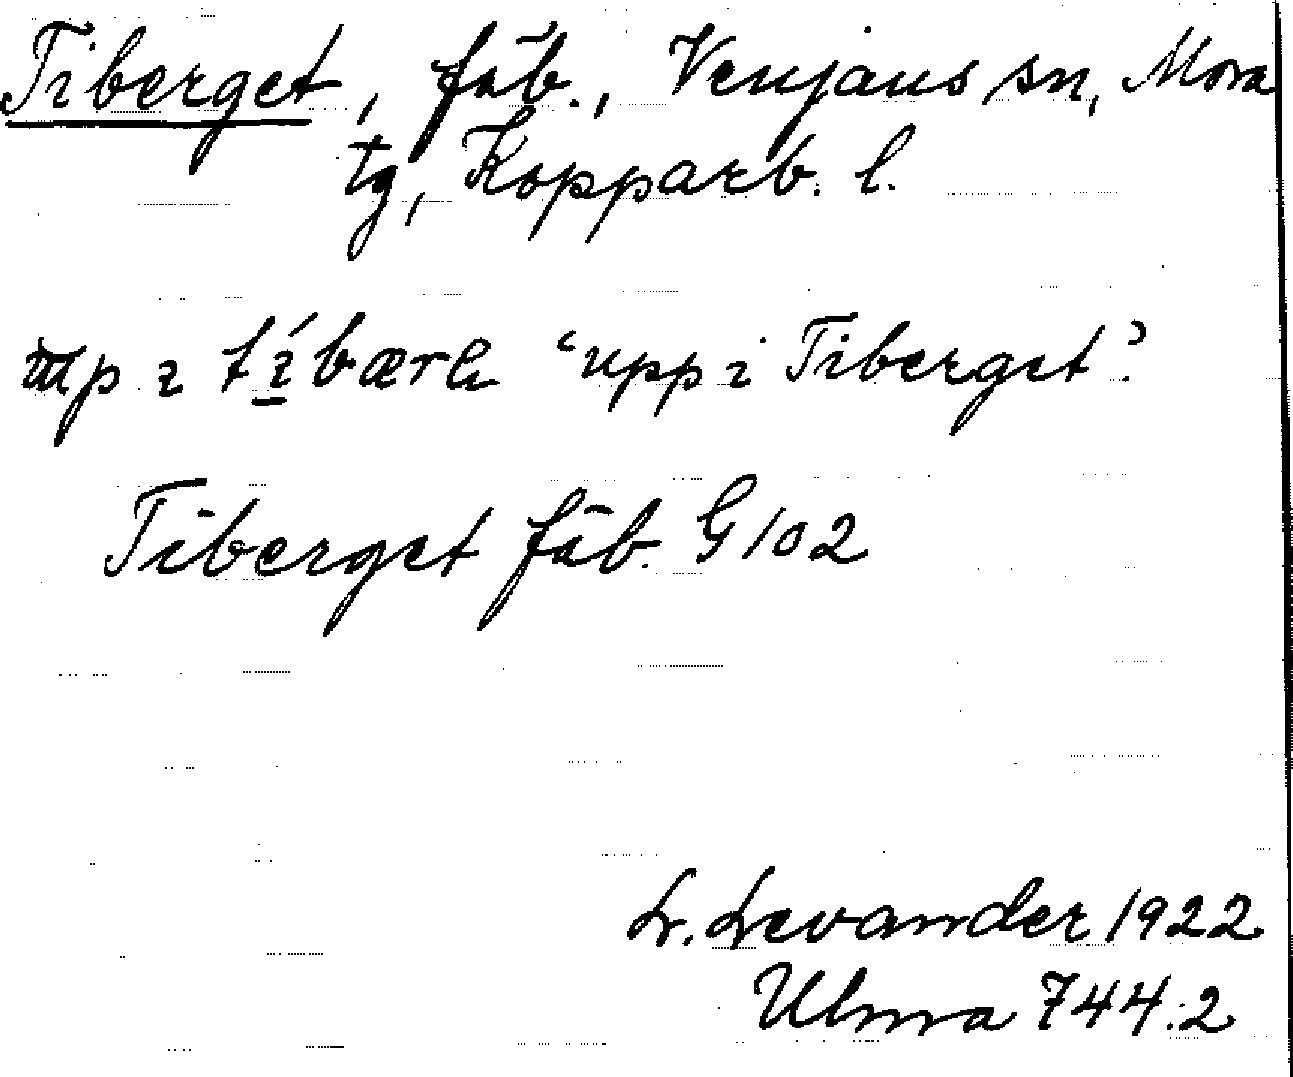 Tiberget, fäb., Venjans sn, Mora
tg, Kopparb. l.
up i tíbærɩ “upp i Tiberget”.
Tiberget fäb. G 102
L. Levander 1922
Ulma 744:2